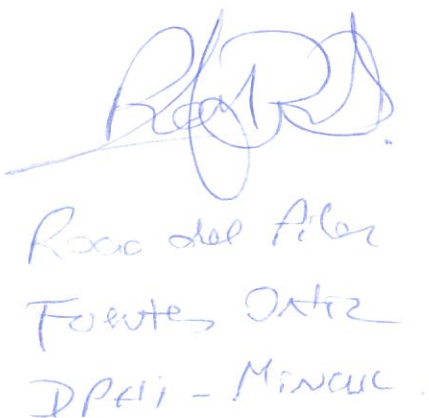 Rocio del Pilar
Fuentes Ortiz
DPHI - MINCUL